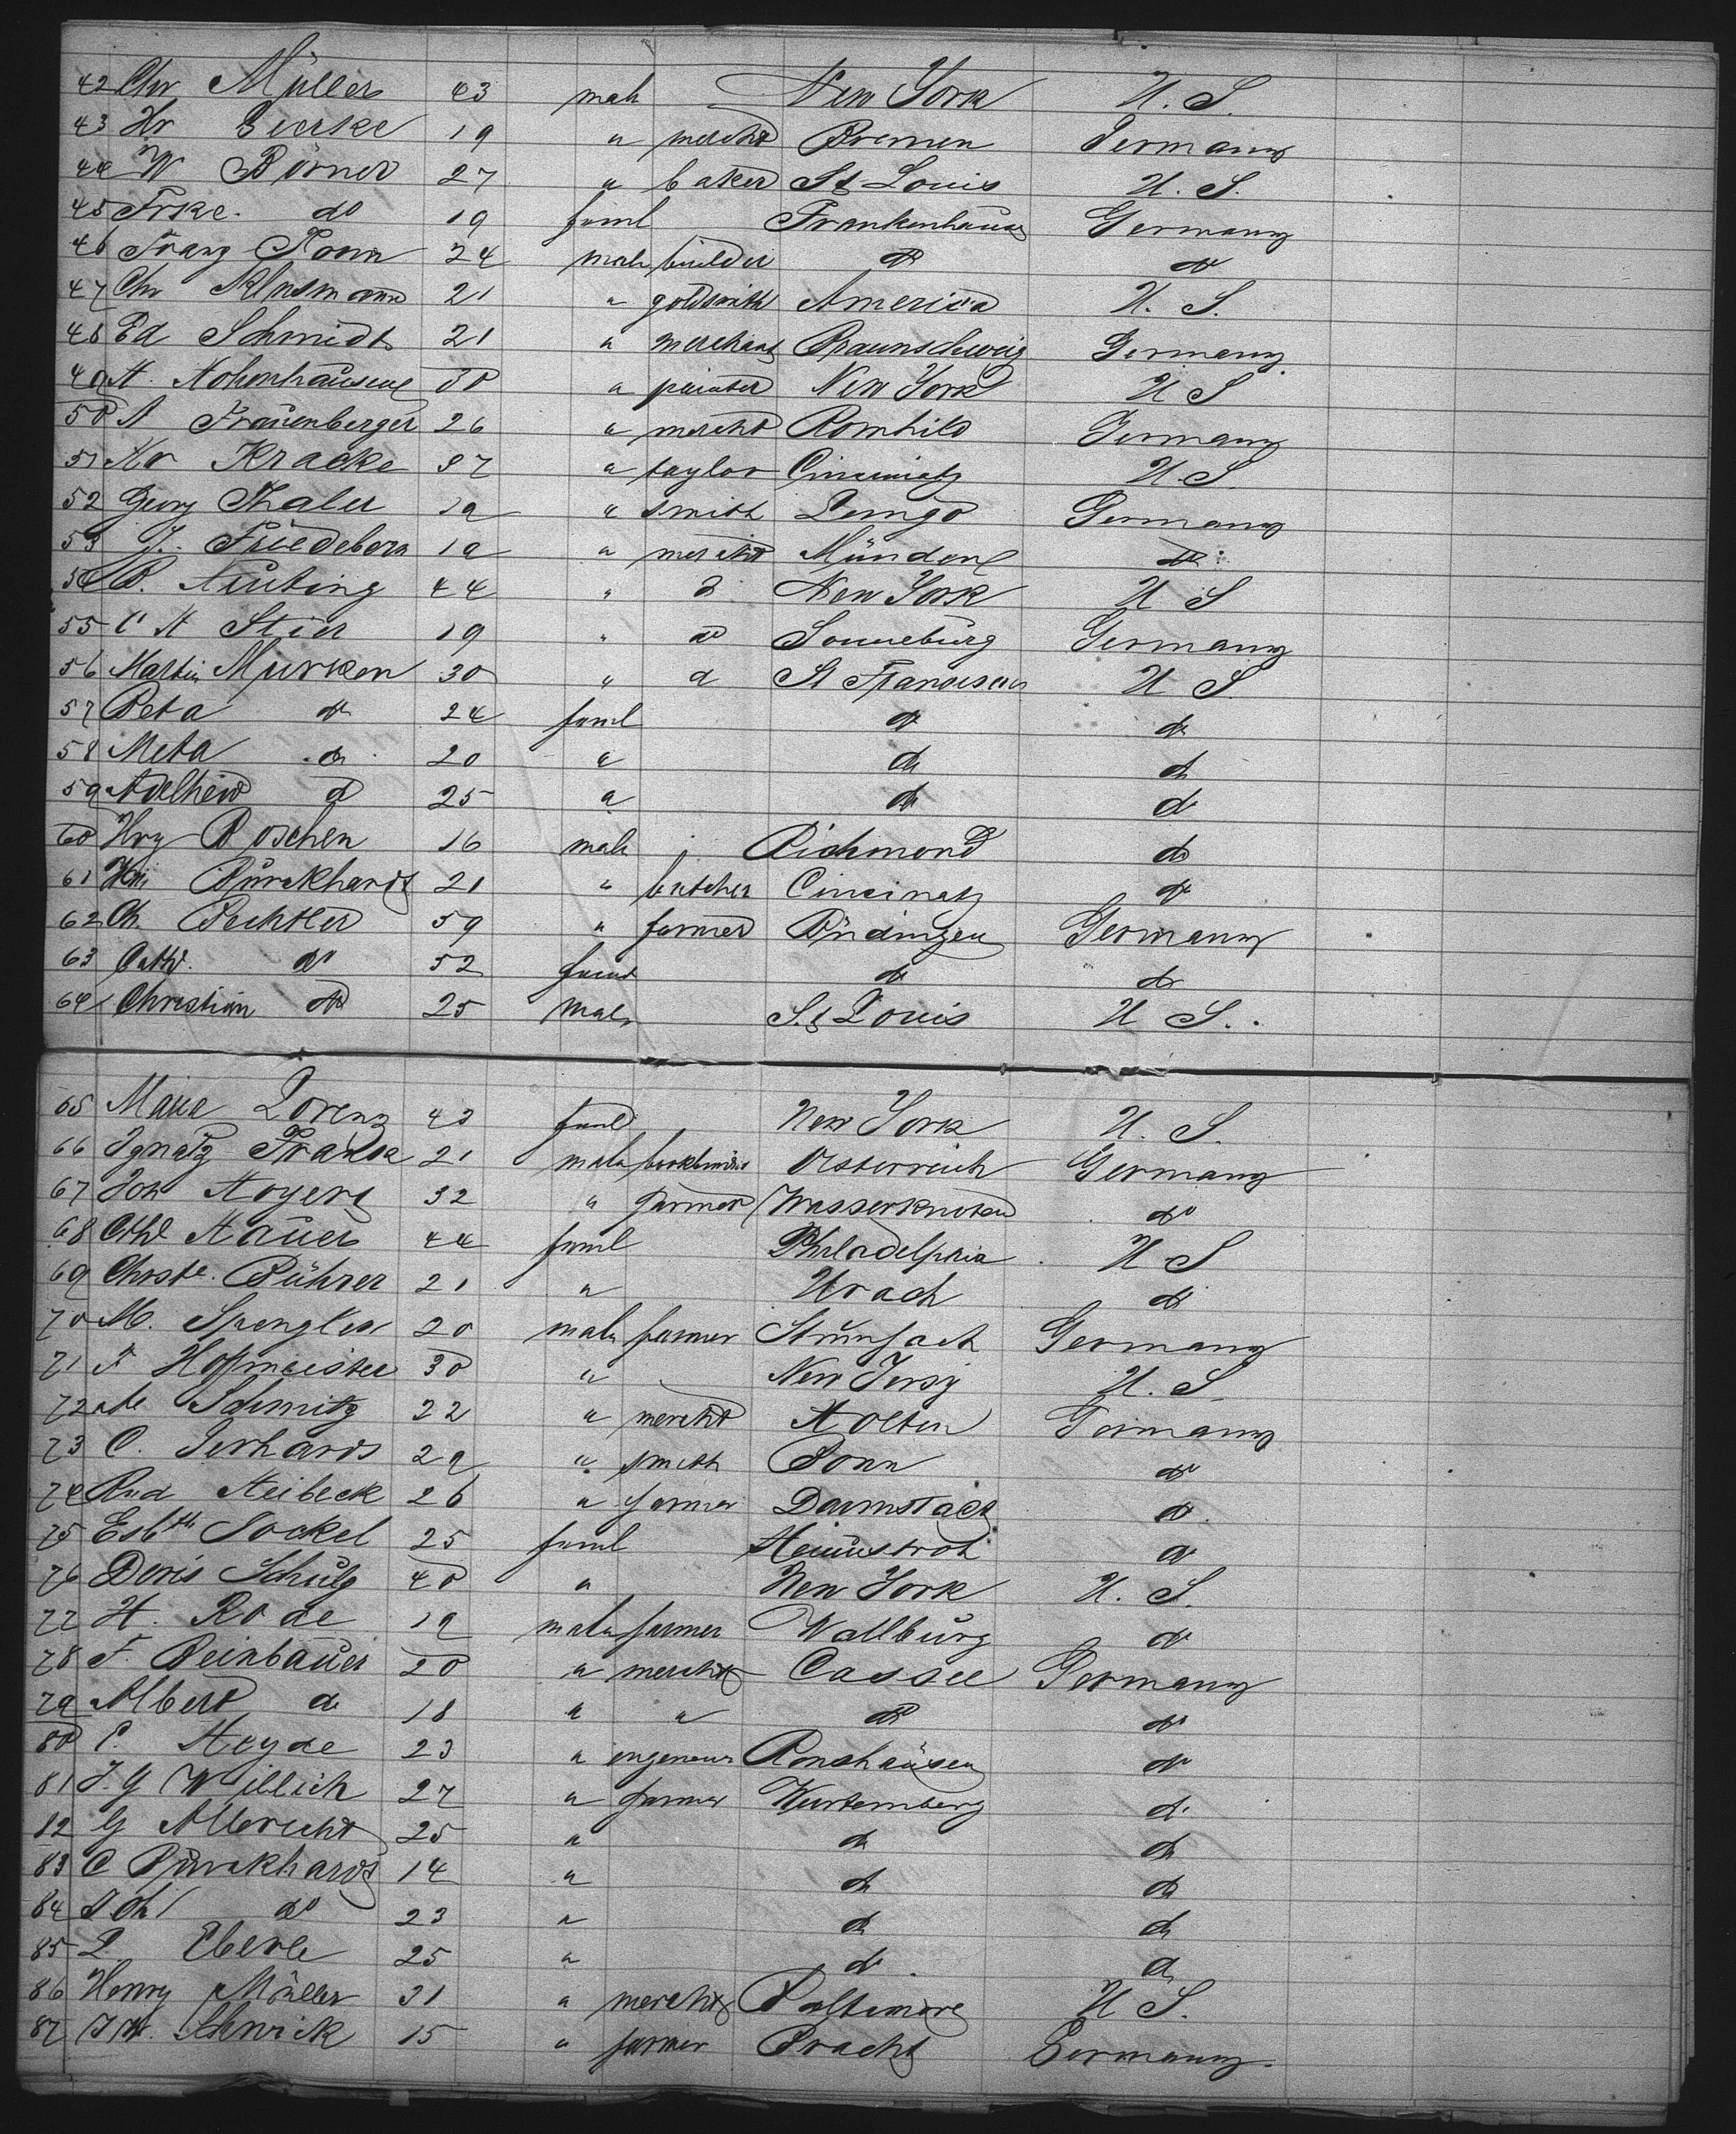 42 Chr Müller 43 male New York U. S.
43 Hr Gierke 19 " mercht Bremen Germany
44 W Börner 27 " baker St Louis U. S.
45 Frske. do 19 feml Frankenhausen Germany
46 Franz Ronn 24 male builder do do
47 Chr Klusmann 21 " goldsmith America U. S.
48 Ed Schmidt 21 " merchant Braunschweig Germany
49 A. Hohenhausen 30 " painter New York U S
50 A Frauenberger 26 " mercht Romhild Germany
51 Hr Kracke 37 " taylor Cincinnaty U. S.
52 Georg Thaler 19 " smith Lemgo Germany
53 J. Friedeberg 19 " mercht Münden do
54 B. Neuting 44 " d New York U S
55 C A Stier 19 " do Sonneburg Germany
56 Martin Murken 30 " d St Francisco U S
57 Beta do 24 feml do do
58 Meta do 20 " do do
59 Adelheid d 25 " do do
60 Hry Boschen 16 male Richmond do
61 Hri Burckhardt 21 " butcher Cincinaty do
62 Ch. Bechtler 59 " farmer Büdingen Germany
63 Cath. do 52 feml do do
64 Christian do 25 male St Louis U S.
65 Maria Lorenz 43 feml New York U. S.
66 Ignatz Frank 21 male bookbinder Osterreich Germany
67 Joh Hoyer 32 " farmer Wasserknoten do
68 Cthe Hauer 44 feml Philadelphia U S
69 Chrste. Bührer 21 " Urach do
70 M. Spengler 20 male farmer Germany
71 F Hoffmeister 30 " New Jersy U. S.
72 Schmitz 22 " mercht Holten Germany
73 C. Gerhards 29 " smith Bonn do
74 Rud Heibeck 26 " farmer Darmstadt do
75 Esbth Sockel 25 feml do
76 Doris Schulz 40 " New York U. S.
77 H. Rode 19 male farmer Wallburg do
78 F. Beinbauer 20 " mercht Cassel Germany
79 Albert do 18 " " do do
80 C. Heyde 23 " ingeneur Ronshausen do
81 J. G Willich 27 " farmer Wurtemberg d.
82 G Albrecht 25 " do do
83 C Burckhardt 14 " do do
84 Joh do 23 " do do
85 L. Eberle 25 " do d
86 Henry Müller 31 " mercht Baltimore U S.
87 Schrick 15 " farmer Bracht Germany.